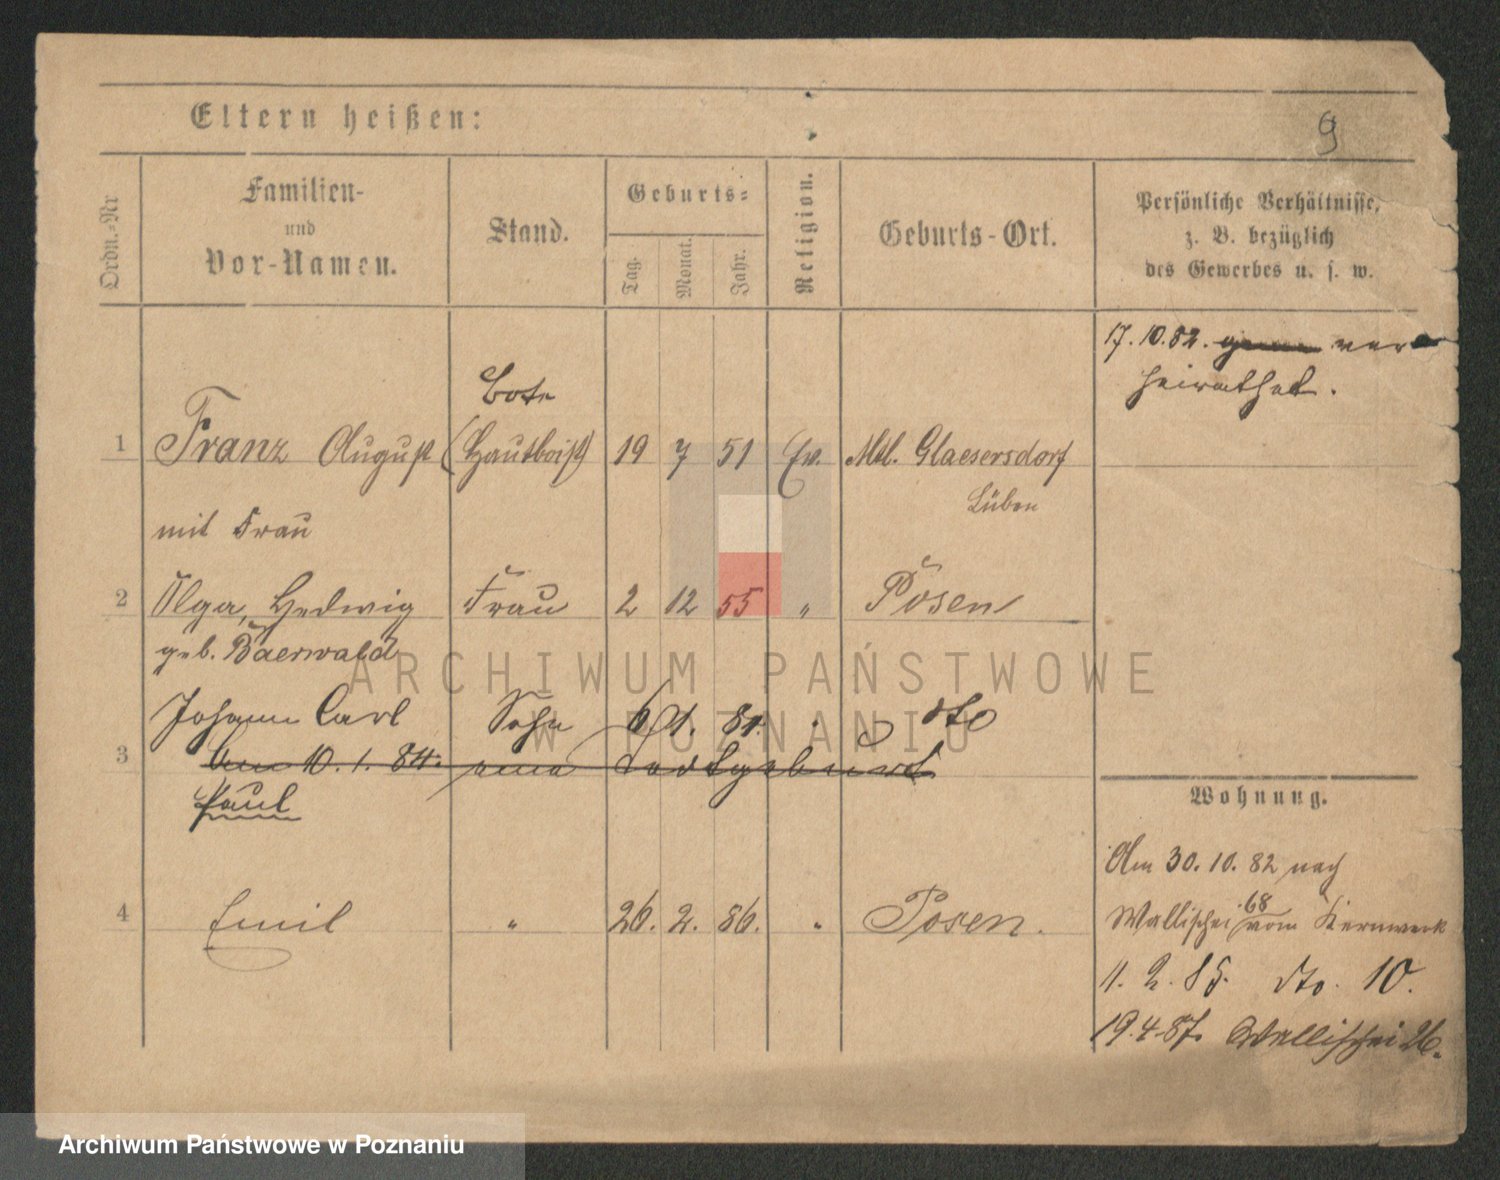 Eltern heißen:
9
Ordn.-Nr
Familien-
und
Vor-Namen.
Stand.
Geburts-
Tag.
Monat.
Jahr.
Religion.
Geburts-Ort.
Persönliche Verhältnisse,
z. B. bezüglich
des Gewerbes u. s. w.
17. 10. 82. ver
heirathet.
Bote
1 Franz August (Hautboist) 19 7 51 Ev. Mtl. Glaesersdorf
Lüben
mit Frau
2 Olga, Hedwig Frau 2 12 55 " Posen
geb. Baerwald
Johann Carl Sohn 6 1. 81. " dto
3 10. 1. 84. eine Todtgeburt
Paul
Wohnung.
Am 30. 10. 82 nach
Wallischei 68 vom Kernwerk
4 Emil " 26. 2. 86. " Posen.
11. 2. 85. dto. 10.
19. 4. 87. Wallischei 26.
ARCHIWUM PAŃSTWOWE
W POZNANIU
Archiwum Państwowe w Poznaniu